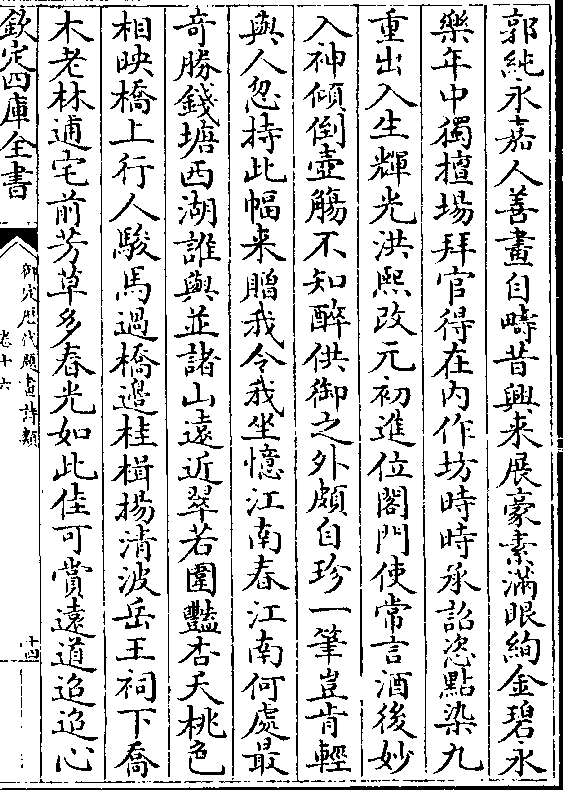 郭純永嘉人善畫自疇昔興来展豪素滿眼絢金碧永
樂年中獨擅場拜官得在內作坊時時承詔恣點染九
重出入生輝光洪熙改元初進位閣門使常言酒後妙
入神傾倒壺觴不知醉供御之外頗自珍一筆豈肯輕
與人忽持此幅来贈我令我坐憶江南春江南何處最
竒勝錢塘西湖誰與並諸山遠近翠若圍豔杏夭桃色
相映橋上行人駿馬過橋邊桂楫揚清波岳王祠下喬
木老林逋宅前芳草多春光如此佳可賞遠道迢迢心
欽定四庫全書
御定歷代題畫詩類
卷十六
十四